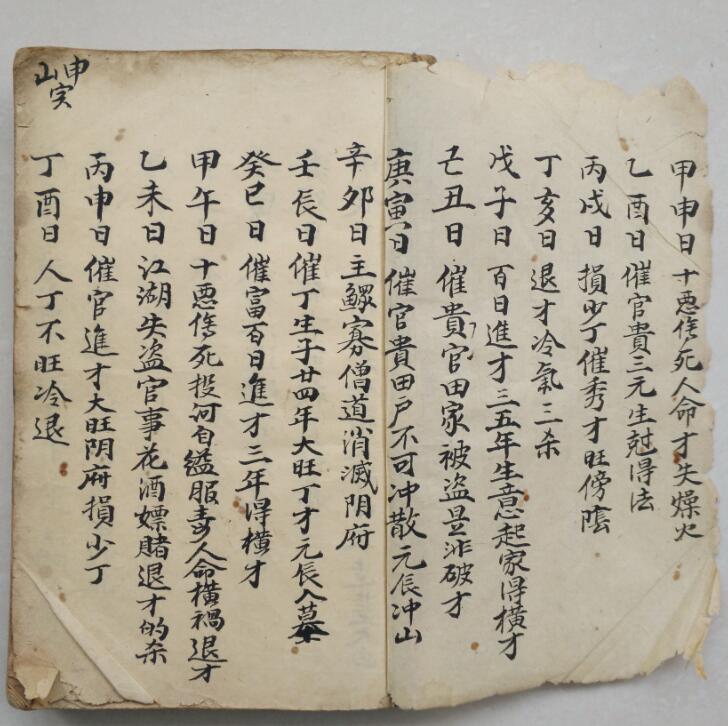 甲申日十悪傷死人命才失燥火
乙酉日催官貴三元生尅得法
丙戌日損少丁催秀才旺傍陰
丁亥日退才冷氣三杀
戊子日百日進才三五年生意起家得横才
己丑日催貴官田家被盗是非破才
庚寅日催官貴田户不可冲散元辰冲山
辛夘日主鰥寡僧道消滅阴府
壬辰日催丁生子廿四年大旺丁才元辰入墓
癸巳日催富百日進才三年得横才
甲午日十悪傷死投河自縊服毒人命横禍退才
乙未日江湖失盗官事花酒嫖賭退才的杀
丙申日催官進才大旺阴府損少丁
丁酉日人丁不旺冷退
申山寅